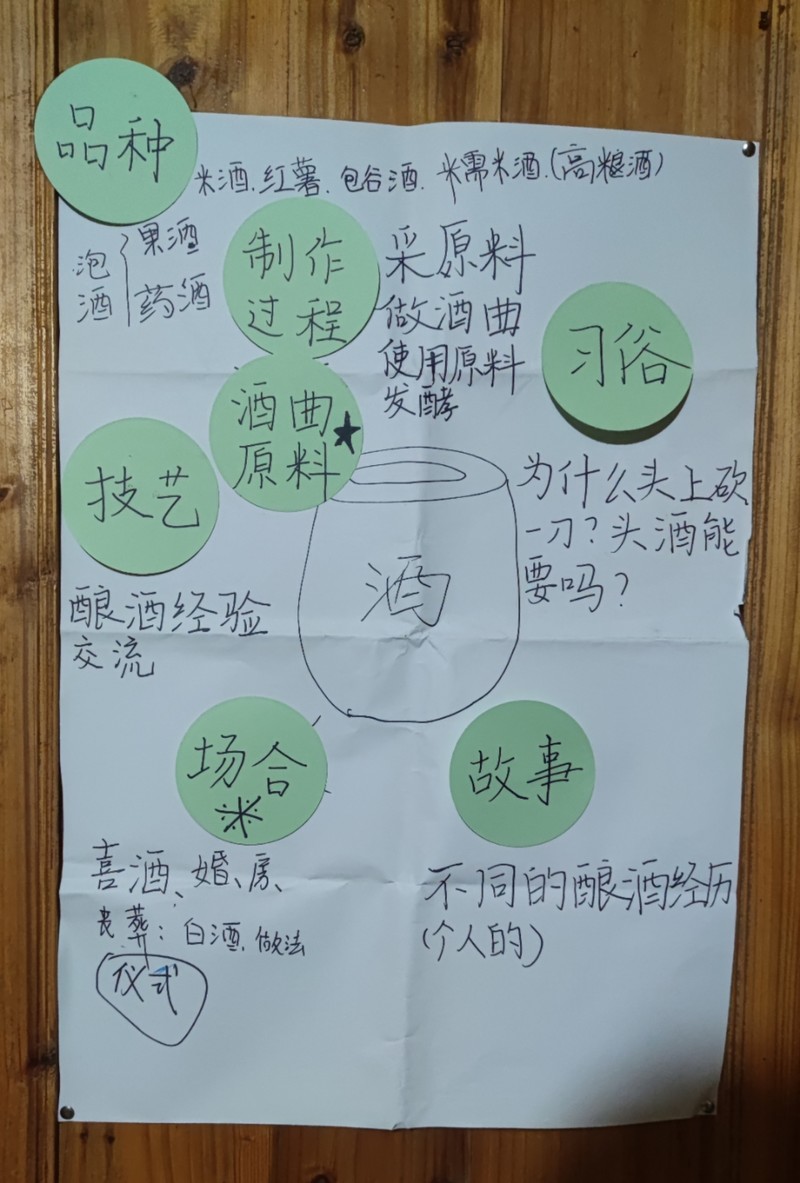 品种
米酒.红薯.包谷酒.糯米酒.(高粮酒)
泡酒
果酒
药酒
制作
过程
采原料
做酒曲
使用原料
发酵
习俗
为什么头上砍
一刀?头酒能
要吗?
酒曲
原料★
技艺
酿酒经验
交流
酒
场合
※
喜酒、婚、房、
丧葬:白酒.做法
仪式
故事
不同的酿酒经历
(个人的)